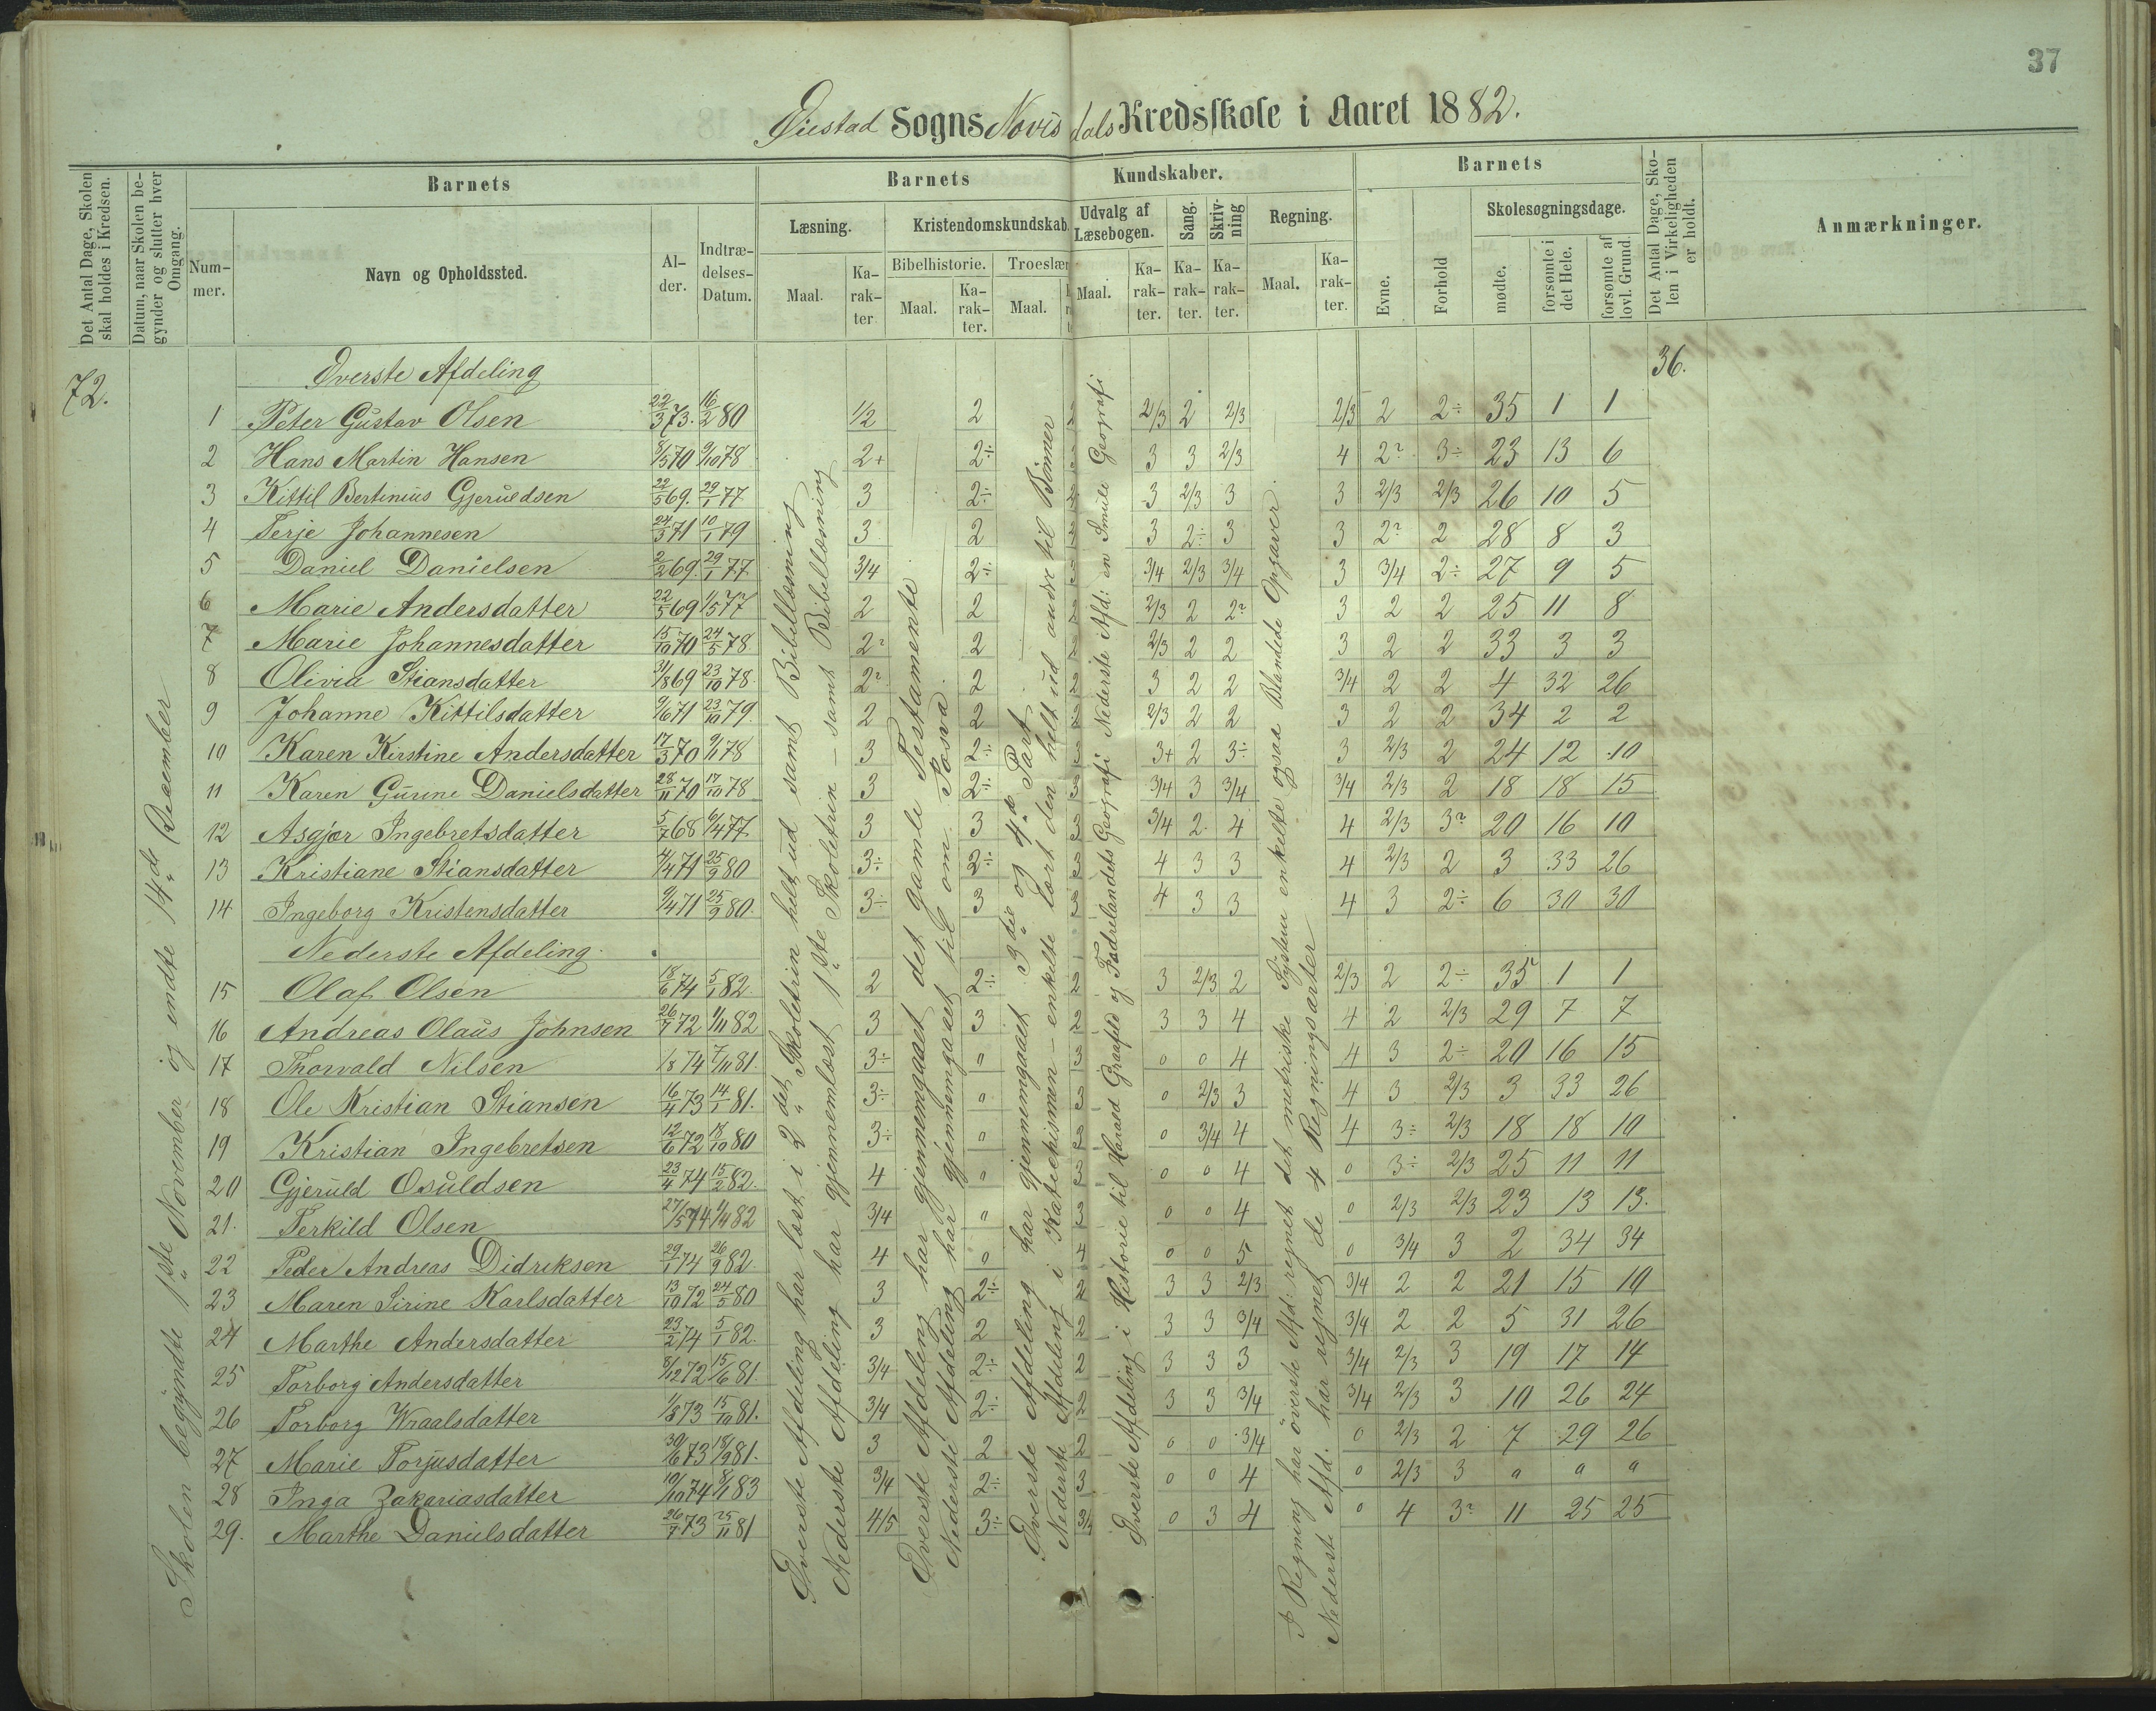 37
Øiestad Sogns Novisdals Kredsskole i Aaret 1882.
Det Antal Dage, Skolen skal holdes i Kredsen.
Datum, naar Skolen begynder og slutter hver Omgang.
Barnets
Nummer.
Navn og Opholdssted.
Alder.
Indtrædelses-Datum.
Barnets Kundskaber.
Læsning.
Maal.
Karakter
Kristendomskundskab.
Bibelhistorie.
Maal.
Karakter.
Troeslær
Maal.
Udvalg af Læsebogen.
Maal.
Karakter.
Sang.
Karakter.
Skrivning
Karakter.
Regning.
Maal.
Karakter.
Barnets
Evne.
Forhold
Skolesøgningsdage.
mødte.
forsømte i det Hele.
forsømte af lovl. Grund.
Det Antal Dage, Skolen i Virkeligheden er holdt.
Anmærkninger.
72.
36.
Skolen begyndte 1ste November og endte 14de December
Øverste Afdeling
1 Peter Gustav Olsen 22/3 73. 16/2 80 1/2 2 2 2/3 2 2/3 2/3 2 2÷ 35 1 1
2 Hans Martin Hansen 8/5 70 9/10 78 2+ 2÷ 3 3 2/3 4 2? 3÷ 23 13 6
3 Kittil Bertinius Gjeruldsen 22/5 69. 29/1 77 3 2÷ 2 3 2/3 3 3 2/3 2/3 26 10 5
4 Terje Johannesen 24/3 71 10/1 79 3 2 3 2÷ 3 3 2? 2 28 8 3
5 Daniel Danielsen 2/2 69. 29/1 77 3/4 2÷ 3/4 2/3 3/4 3 3/4 2÷ 27 9 5
6 Marie Andersdatter 22/5 69 1/5 77 2 2 2 2/3 2 2? 3 2 2 25 11 8
7 Marie Johannesdatter 15/10 70 24/5 78 2? 2 2 2/3 2 2 3 2 2 33 3 3
8 Olivia Stiansdatter 31/8 69 23/10 78 2? 2 2 3 2 2 3/4 2 2 4 32 26
9 Johanne Kittilsdatter 9/6 71 23/10 79. 2 2 2 2/3 2 2 3 2 2 34 2 2
10 Karen Kirstine Andersdatter 17/3 70 9/11 78 3 2÷ 3+ 2 3÷ 3 2/3 2 24 12 10
11 Karen Gurine Danielsdatter 28/11 70 17/10 78 3 2÷ 3 3/4 3 3/4 3/4 2/3 2 18 18 15
12 Asgjær Ingebretsdatter 5/7 68 6/4 77 3 3 3 3/4 2 4 4 2/3 3? 20 16 10
13 Kristiane Stiansdatter 4/4 71 25/9 80 3÷ 2÷ 3 4 3 3 4 2/3 2 3 33 26
14 Ingeborg Kristensdatter 9/4 71 25/9 80. 3÷ 3 3 4 3 3 4 3 2÷ 6 30 30
Nederste Afdeling.
15 Olaf Olsen 18/6 74 5/1 82 2 2÷ 2 3 2/3 2 2/3 2 2÷ 35 1 1
16 Andreas Olaus Johnsen 26/7 72 1/11 82 3 3 2 3 3 4 4 2 2/3 29 7 7
17 Thorvald Nilsen 1/8 74 7/11 81. 3÷ " 3 0 0 4 4 3 2÷ 20 16 15
18 Ole Kristian Stiansen 16/4 73 14/1 81. 3÷ " 3 0 2/3 3 4 3 2/3 3 33 26
19 Kristian Ingebretsen 12/6 72 18/10 80 3÷ " 3 0 3/4 4 4 3÷ 2/3 18 18 10
20 Gjeruld Osuldsen 23/4 74 15/2 82. 4 " 3 0 0 4 0 3÷ 2/3 25 11 11
21. Terkild Olsen 27/5 74 9/4 82 3/4 " 3 0 0 4 0 2/3 2/3 23 13 13.
22 Peder Andreas Didriksen 29/1 74 26/9 82 4 0 4 0 0 5 0 3/4 3 2 34 34
23 Maren Sirine Karlsdatter 13/10 72 24/5 80 3 2÷ 2 3 3 2/3 3/4 2 2 21 15 10
24 Marthe Andersdatter 23/2 74 5/1 82. 3 2 2 3 3 3/4 3/4 2 2 5 31 26
25 Torborg Andersdatter 8/12 72 15/6 81. 3/4 2÷ 2 3 3 3 3/4 2/3 3 19 17 14
26 Torborg Wraalsdatter 1/8 73 15/10 81. 3/4 2÷ 2 3 3 3/4 3/4 2/3 3 10 26 24
27 Marie Torjusdatter 30/6 73 18/9 81. 3 2 2 0 0 3/4 0 2/3 2 7 29 26
28 Inga Zakariasdatter 10/10 74 8/1 83 3/4 2÷ 3 0 0 4 0 2/3 3 " " "
29. Marthe Danielsdatter 26/7 73 25/11 81 4/5 3÷ 3/4 0 3 4 0 4 3? 11 25 25
Øverste Afdeling har læst i 2det Skoletrin helt ud samt Bibellæsning
Nederste Afdeling har gjennemlæst 1ste Skoletrin – samt Bibellæsning
Øverste Afdeling har gjennemgaaet det gamle Testamente
Nederste Afdeling har gjennemgaaet til om Josva.
Øverste Afdeling har gjennemgaaet 3die og 4de Part
Nederste Afdeling i Katechismen – enkelte lært den helt ud andre til Bønner
Øverste Afdeling i Historie til Harald Graafeld og Fædrelandets Geografi Nederste Afd: en Smule Geografi
I Regning har överste Afd: regnet det metriske System enkelte ogsaa Blandede Opgaver.
Nederste Afd. har regnet de 4 Regningsarter